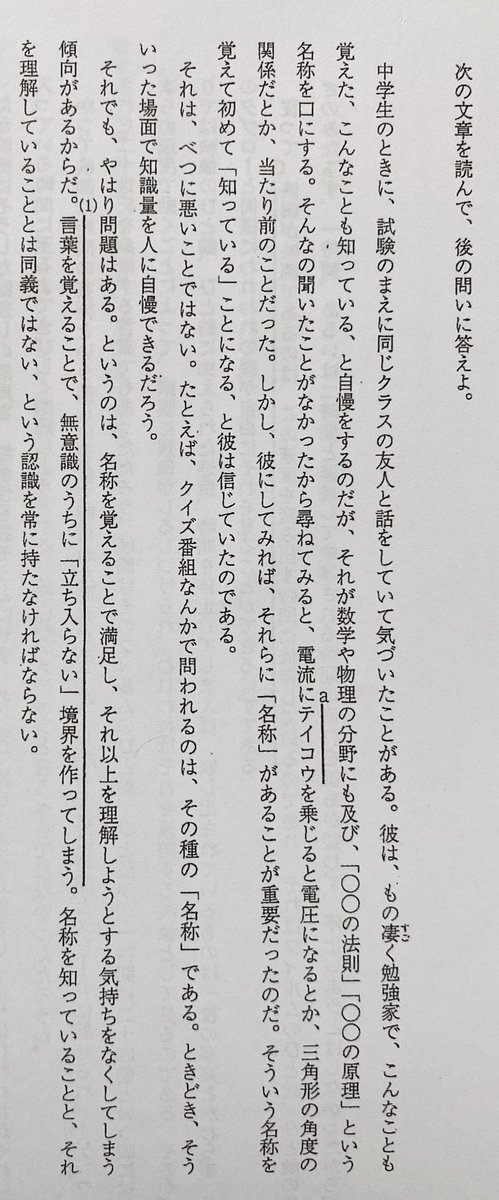 次の文章を読んで、後の問いに答えよ。
中学生のときに、試験のまえに同じクラスの友人と話をしていて気づいたことがある。彼は、もの凄く勉強家で、こんなことも
すご
覚えた、こんなことも知っている、と自慢をするのだが、それが数学や物理の分野にも及び、「〇〇の法則」「〇〇の原理」という
名称を口にする。そんなの聞いたことがなかったから尋ねてみると、電流にテイコウを乗じると電圧になるとか、三角形の角度の
a
関係だとか、当たり前のことだった。しかし、彼にしてみれば、それらに「名称」があることが重要だったのだ。そういう名称を
覚えて初めて「知っている」ことになる、と彼は信じていたのである。
それは、べつに悪いことではない。たとえば、クイズ番組なんかで問われるのは、その種の「名称」である。ときどき、そう
いった場面で知識量を人に自慢できるだろう。
それでも、やはり問題はある。というのは、名称を覚えることで満足し、それ以上を理解しようとする気持ちをなくしてしまう
傾向があるからだ。言葉を覚えることで、無意識のうちに「立ち入らない」境界を作ってしまう。名称を知っていることと、それ
(1)
を理解していることとは同義ではない、という認識を常に持たなければならない。